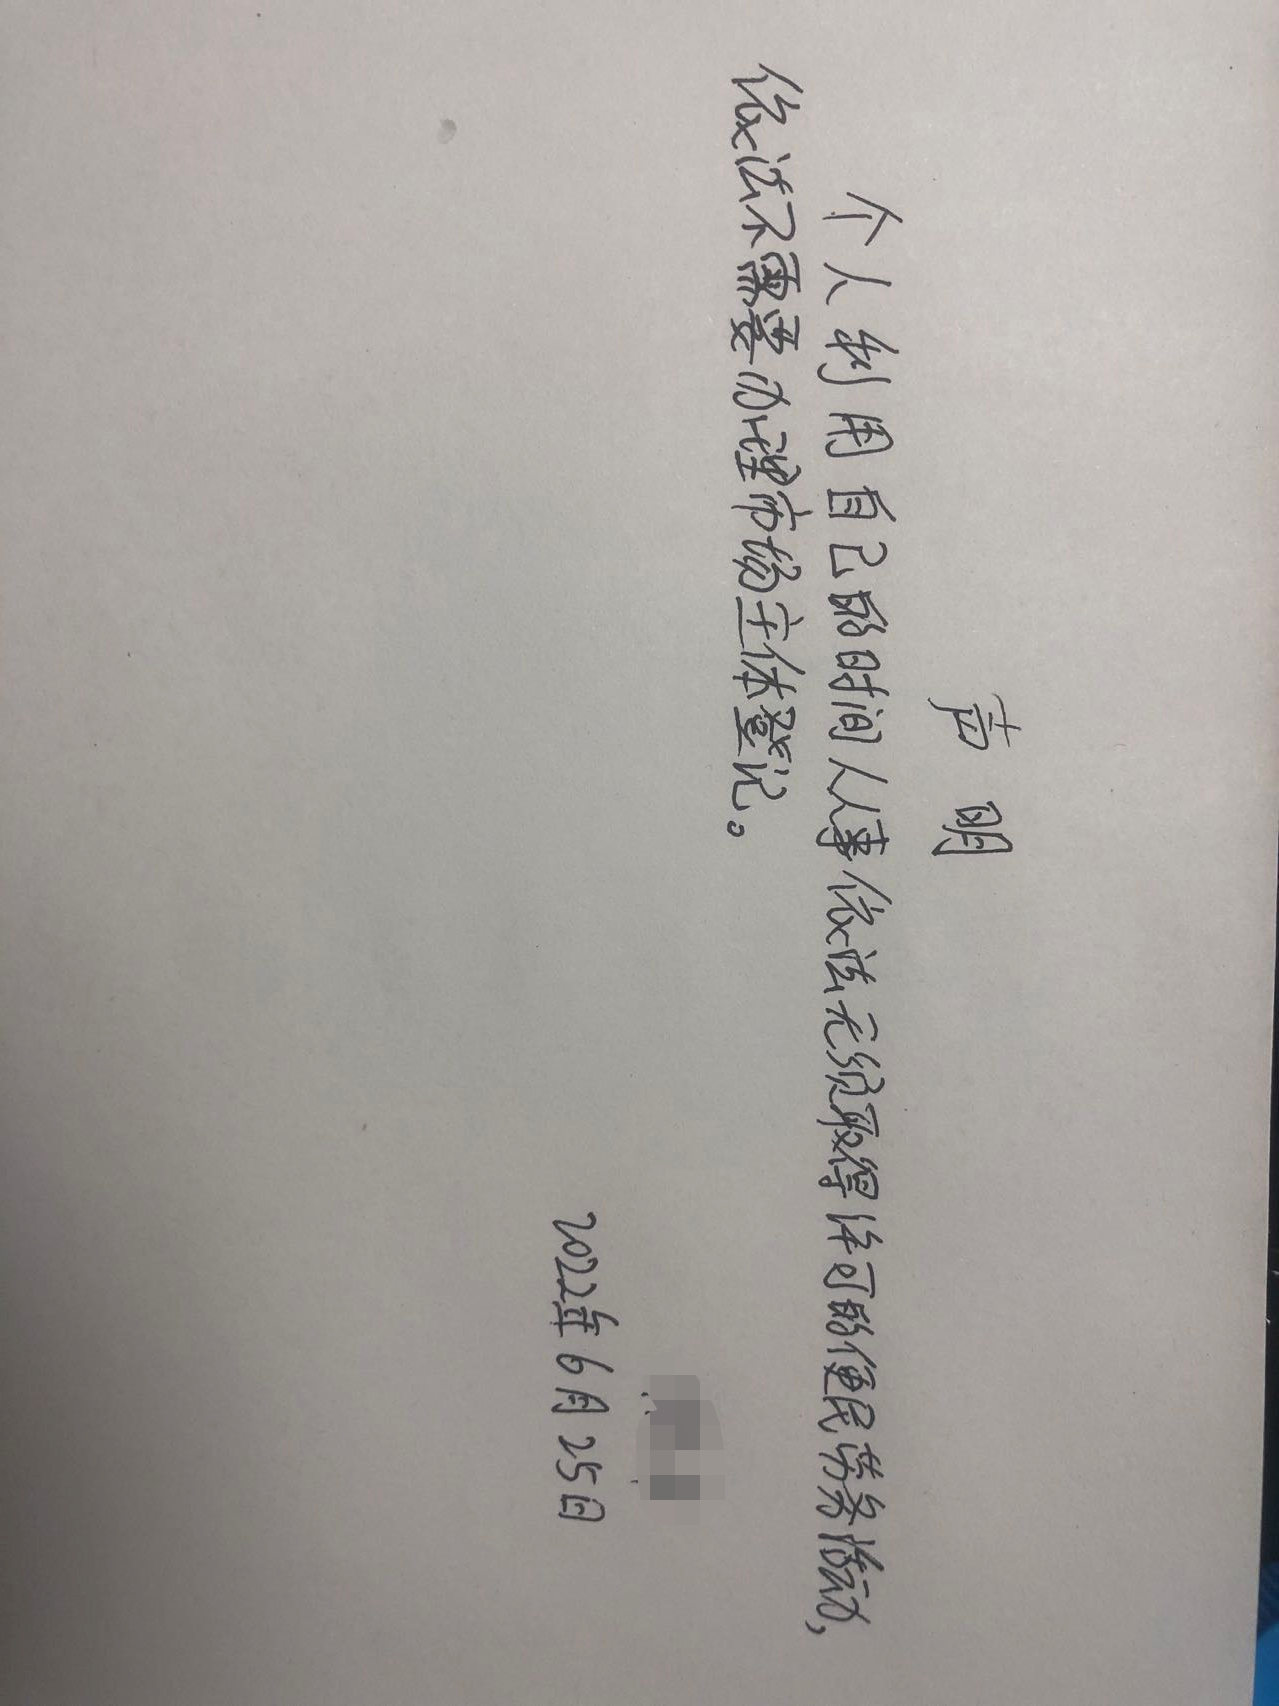 声明
个人利用自己的时间从事依法无须取得许可的便民劳务活动,
依法不需要办理市场主体登记。
2022年6月25日